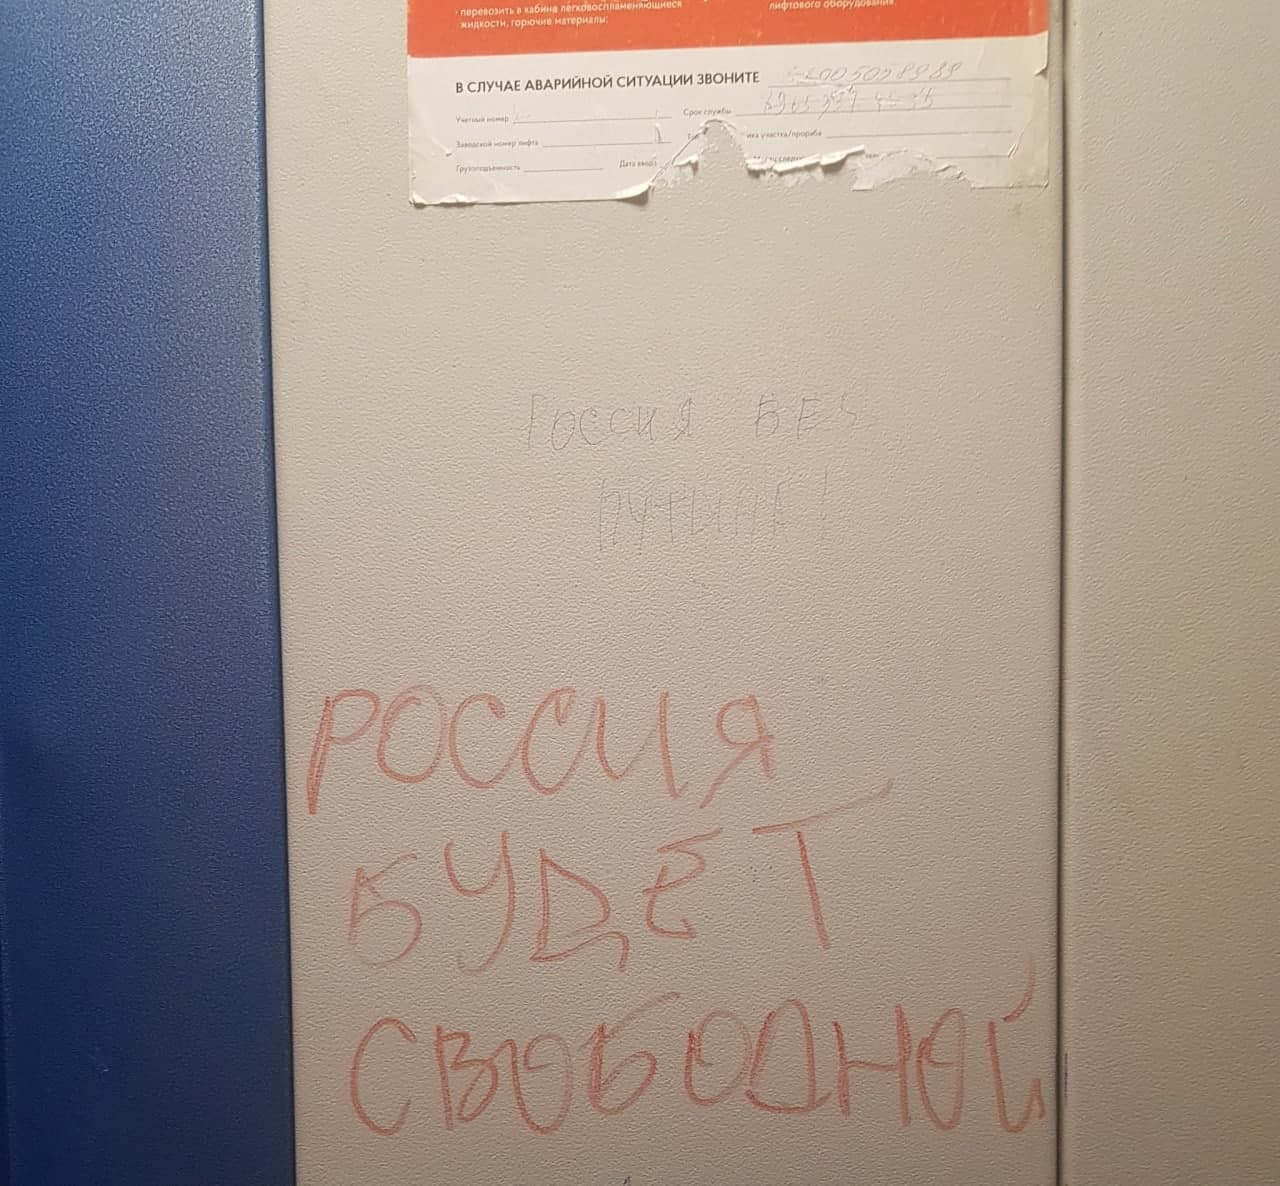 · перевозить в кабине легковоспламеняющиеся
жидкости, горючие материалы;
лифтового оборудования
В СЛУЧАЕ АВАРИЙНОЙ СИТУАЦИИ ЗВОНИТЕ
Учетный номер
Срок службы
Заводской номер лифта
участка/прораба
Грузоподъемность
Дата ввода
РОССИЯ БЕЗ
ПУТИНА!
РОССИЯ
БУДЕТ
СВОБОДНОЙ